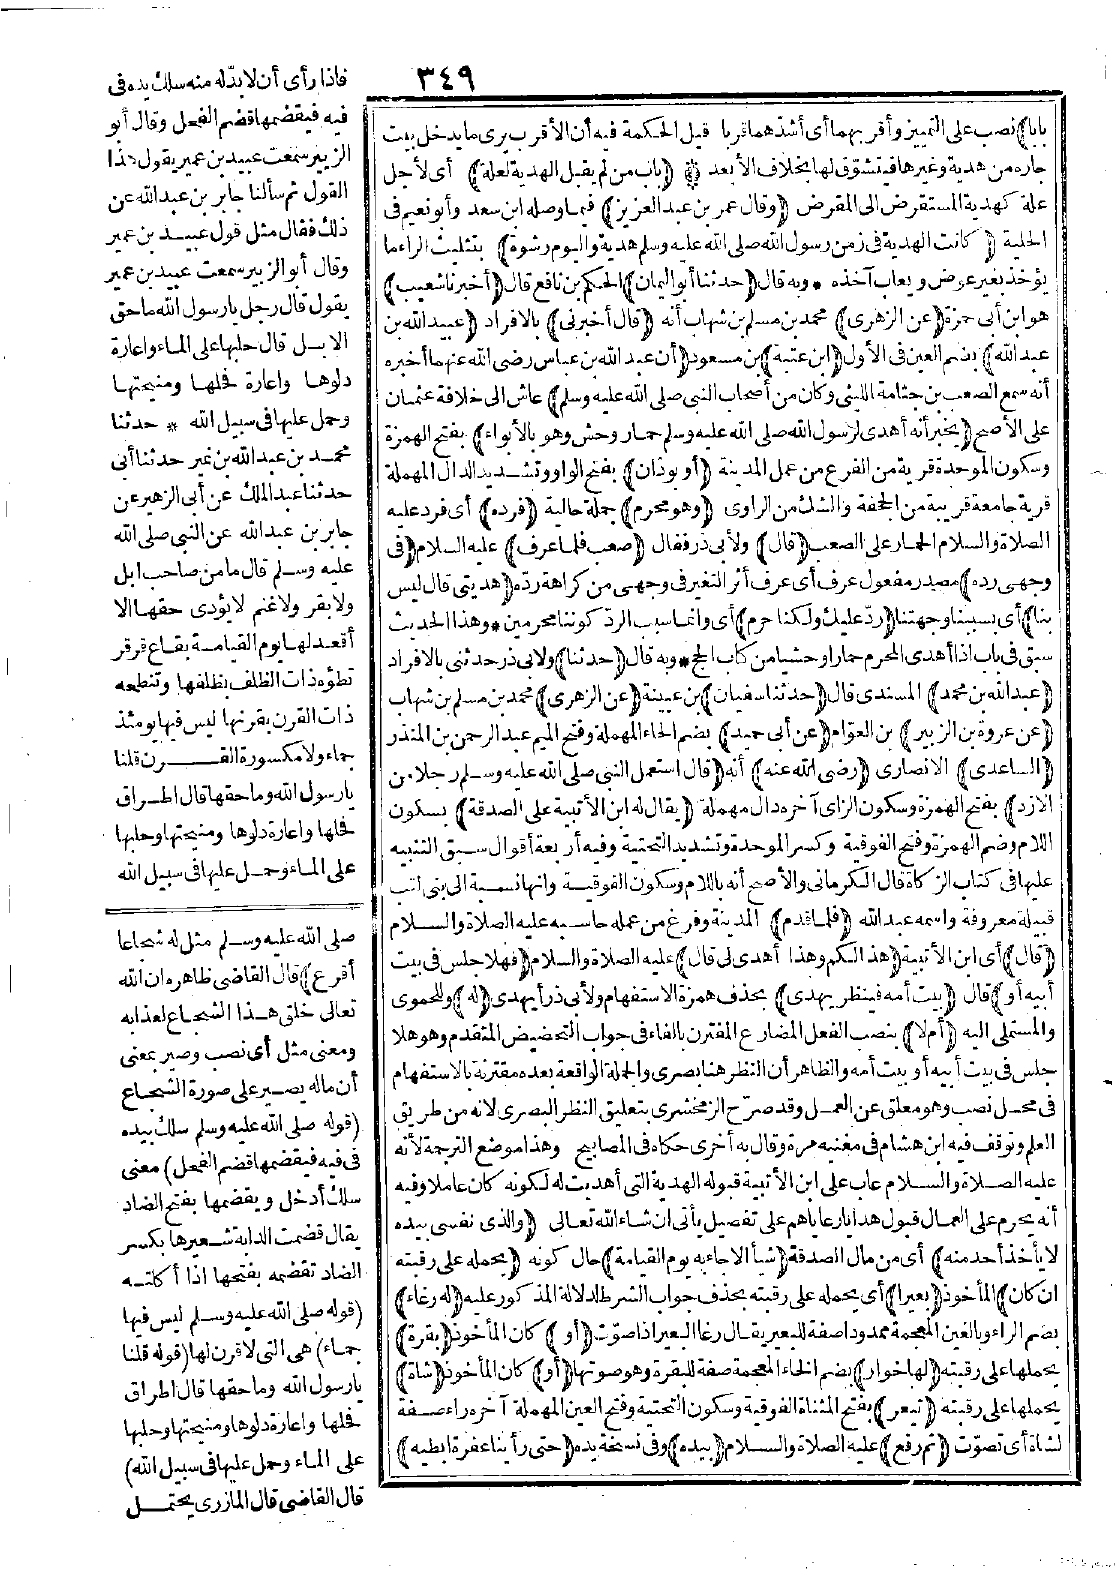 ٣٤٩
بابا) نصب على التمييز وأقربهما أى أشدهما قربا قيل الحكمة فيه أن الأقرب يرى ما يدخل بيت
جاره من هدية وغيرها فيتشوق لها بخلاف الأبعد ۞ (باب من لم يقبل الهدية لعلة) أى لأجل
علة كهدية المستقرض الى المقرض (وقال عمر بن عبد العزيز) فيما وصله ابن سعد وأبو نعيم فى
الحلية (كانت الهدية فى زمن رسول الله صلى الله عليه وسلم هدية واليوم رشوة) بتثليث الراء ما
يؤخذ بغير عوض ويعاب آخذه * وبه قال (حدثنا أبو اليمان) الحكم بن نافع قال (أخبرنا شعيب)
هو ابن أبى حمزة (عن الزهرى) محمد بن مسلم بن شهاب أنه (قال أخبرنى) بالافراد (عبيد الله بن
عبد الله) بضم العين فى الأول (ابن عتبة) بن مسعود (أن عبد الله بن عباس رضى الله عنهما أخبره
أنه سمع الصعب بن جثامة الليثى وكان من أصحاب النبى صلى الله عليه وسلم) عاش الى خلافة عثمان
على الأصح (يخبر أنه أهدى لرسول الله صلى الله عليه وسلم حمار وحش وهو بالأبواء) بفتح الهمزة
وسكون الموحدة قرية من الفرع من عمل المدينة (أو بودان) بفتح الواو وتشديد الدال المهملة
قرية جامعة قريبة من الجحفة والشك من الراوى (وهو محرم) جملة حالية (فرده) أى فرد عليه
الصلاة والسلام الحمار على الصعب (قال) ولأبى ذر فقال (صعب فلما عرف) عليه السلام (فى
وجهى رده) مصدر مفعول عرف أى عرف أثر التغير فى وجهى من كراهة ردّه (هديتى قال ليس
بنا) أى بسببنا وجهتنا (ردّ عليك ولكنا حرم) أى وانما سبب الرد كوننا محرمين * وهذا الحديث
سبق فى باب اذا أهدى المحرم حمارا وحشيا من كتاب الحج * وبه قال (حدثنا) ولابى ذر حدثنى بالافراد
(عبد الله بن محمد) المسندى قال (حدثنا سفيان) بن عيينة (عن الزهرى) محمد بن مسلم بن شهاب
(عن عروة بن الزبير) بن العوام (عن أبى حميد) بضم الحاء المهملة وفتح الميم عبد الرحمن بن المنذر
(الساعدى) الانصارى (رضى الله عنه) أنه (قال استعمل النبى صلى الله عليه وسلم رجلا من
الازد) بفتح الهمزة وسكون الزاى آخره دال مهملة (يقال له ابن الأتبية على الصدقة) بسكون
اللام وضم الهمزة وفتح الفوقية وكسر الموحدة وتشديد التحتية وفيه أربعة أقوال سبق التنبيه
عليها فى كتاب الزكاة قال الكرمانى والأصح أنه باللام وسكون الفوقية وانها نسبة الى بنى لتب
قبيلة معروفة واسمه عبد الله (فلما قدم) المدينة وفرغ من عمله حاسبه عليه الصلاة والسلام
(قال) أى ابن الأتبية (هذا لكم وهذا أهدى لى قال) عليه الصلاة والسلام (فهلا جلس فى بيت
أبيه أو) قال (بيت أمه فينظر يهدى) بحذف همزة الاستفهام ولأبى ذر أيهدى (له) وللحموى
والمستملى اليه (أم لا) بنصب الفعل المضارع المقترن بالفاء فى جواب التحضيض المتقدم وهو هلا
جلس فى بيت أبيه أو بيت أمه والظاهر أن النظر هنا بصرى والجملة الواقعة بعده مقترنة بالاستفهام
فى محل نصب وهو معلق عن العمل وقد صرح الزمخشرى بتعليق النظر البصرى لانه من طريق
العلم وتوقف فيه ابن هشام فى مغنيه مرة وقال به أخرى حكاه فى المصابيح وهذا موضع الترجمة لأنه
عليه الصلاة والسلام عاب على ابن الأتبية قبوله الهدية التى أهديت له لكونه كان عاملا وفيه
أنه يحرم على العمال قبول هدايا رعاياهم على تفصيل يأتى ان شاء الله تعالى (والذى نفسى بيده
لا يأخذ أحد منه) أى من مال الصدقة (شيأ الا جاء به يوم القيامة) حال كونه (يحمله على رقبته
ان كان) المأخوذ (بعيرا) أى يحمله على رقبته بحذف جواب الشرط لدلالة المذكور عليه (له رغاء)
بضم الراء وبالغين المعجمة ممدودا صفة للبعير يقال رغا البعير اذا صوّت (أو) كان المأخوذ (بقرة)
يحملها على رقبته (لها خوار) بضم الخاء المعجمة صفة للبقرة وهو صوتها (أو) كان المأخوذ (شاة)
يحملها على رقبته (تيعر) بفتح المثناة الفوقية وسكون التحتية وفتح العين المهملة آخره راء صفة
لشاة أى تصوّت (ثم رفع) عليه الصلاة والسلام (بيده) وفى نسخة يده (حتى رأينا عفرة ابطيه)
فاذا رأى أن لابدّ له منه سلك يده فى
فيه فيقضمها قضم الفحل وقال أبو
الزبير سمعت عبيد بن عمير يقول هذا
القول ثم سألنا جابر بن عبد الله عن
ذلك فقال مثل قول عبيد بن عمير
وقال أبو الزبير سمعت عبيد بن عمير
يقول قال رجل يا رسول الله ما حق
الابل قال حلبها على الماء واعارة
دلوها واعارة فحلها ومنيحتها
وحمل عليها فى سبيل الله * حدثنا
محمد بن عبد الله بن نمير حدثنا أبى
حدثنا عبد الملك عن أبى الزبير عن
جابر بن عبد الله عن النبى صلى الله
عليه وسلم قال ما من صاحب ابل
ولا بقر ولا غنم لا يؤدى حقها الا
أقعد لها يوم القيامة بقاع قرقر
تطؤه ذات الظلف بظلفها وتنطحه
ذات القرن بقرنها ليس فيها يومئذ
جماء ولا مكسورة القرن قلنا
يا رسول الله وما حقها قال اطراق
فحلها واعارة دلوها ومنيحتها وحلبها
على الماء وحمل عليها فى سبيل الله
صلى الله عليه وسلم مثل له شجاعا
أقرع) قال القاضى ظاهره ان الله
تعالى خلق هذا الشجاع لعذابه
ومعنى مثل أى نصب وصير بمعنى
أن ماله يصير على صورة الشجاع
(قوله صلى الله عليه وسلم سلك بيده
فى فيه فيقضمها قضم الفحل) معنى
سلك أدخل ويقضمها بفتح الضاد
يقال قضمت الدابة شعيرها بكسر
الضاد تقضمه بفتحها اذا أكلته
(قوله صلى الله عليه وسلم ليس فيها
جماء) هى التى لا قرن لها (قوله قلنا
يا رسول الله وما حقها قال اطراق
فحلها واعارة دلوها ومنيحتها وحلبها
على الماء وحمل عليها فى سبيل الله)
قال القاضى قال المازرى يحتمل